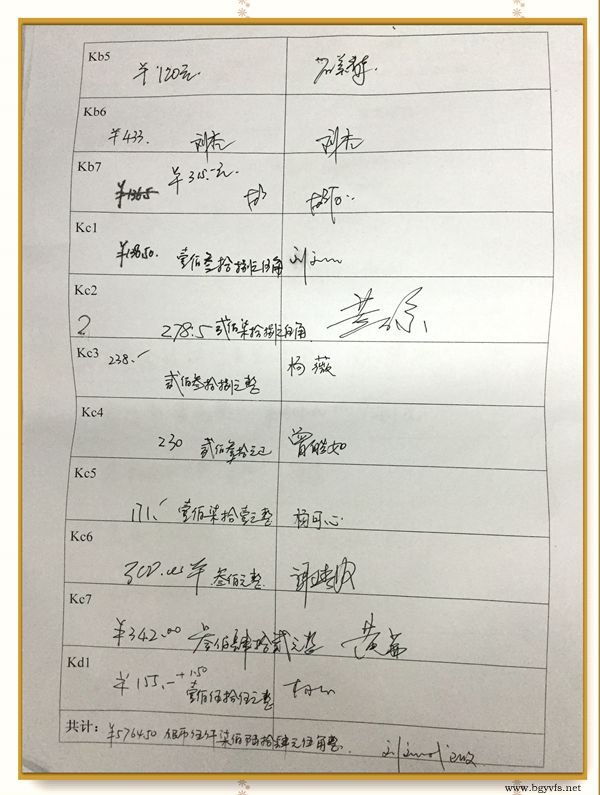 Kb5
￥120元
Kb6
￥433.
刘杰
刘杰
Kb7
￥315.-元
Kc1
￥138.50.
壹佰叁拾捌元伍角
Kc2
2
278.5 贰佰柒拾捌元伍角
Kc3
238.-
贰佰叁拾捌元整
杨薇
Kc4
230
贰佰叁拾元正
曾皓如
Kc5
171.-
壹佰柒拾壹元整
杨可心
Kc6
300.00
叁佰元整
Kc7
￥342.00
叁佰肆拾贰元整
Kd1
￥155.-
+1.50
壹佰伍拾伍元整
共计:
￥5764.50
伍仟柒佰陆拾肆元伍角整
www.bgyvfs.net